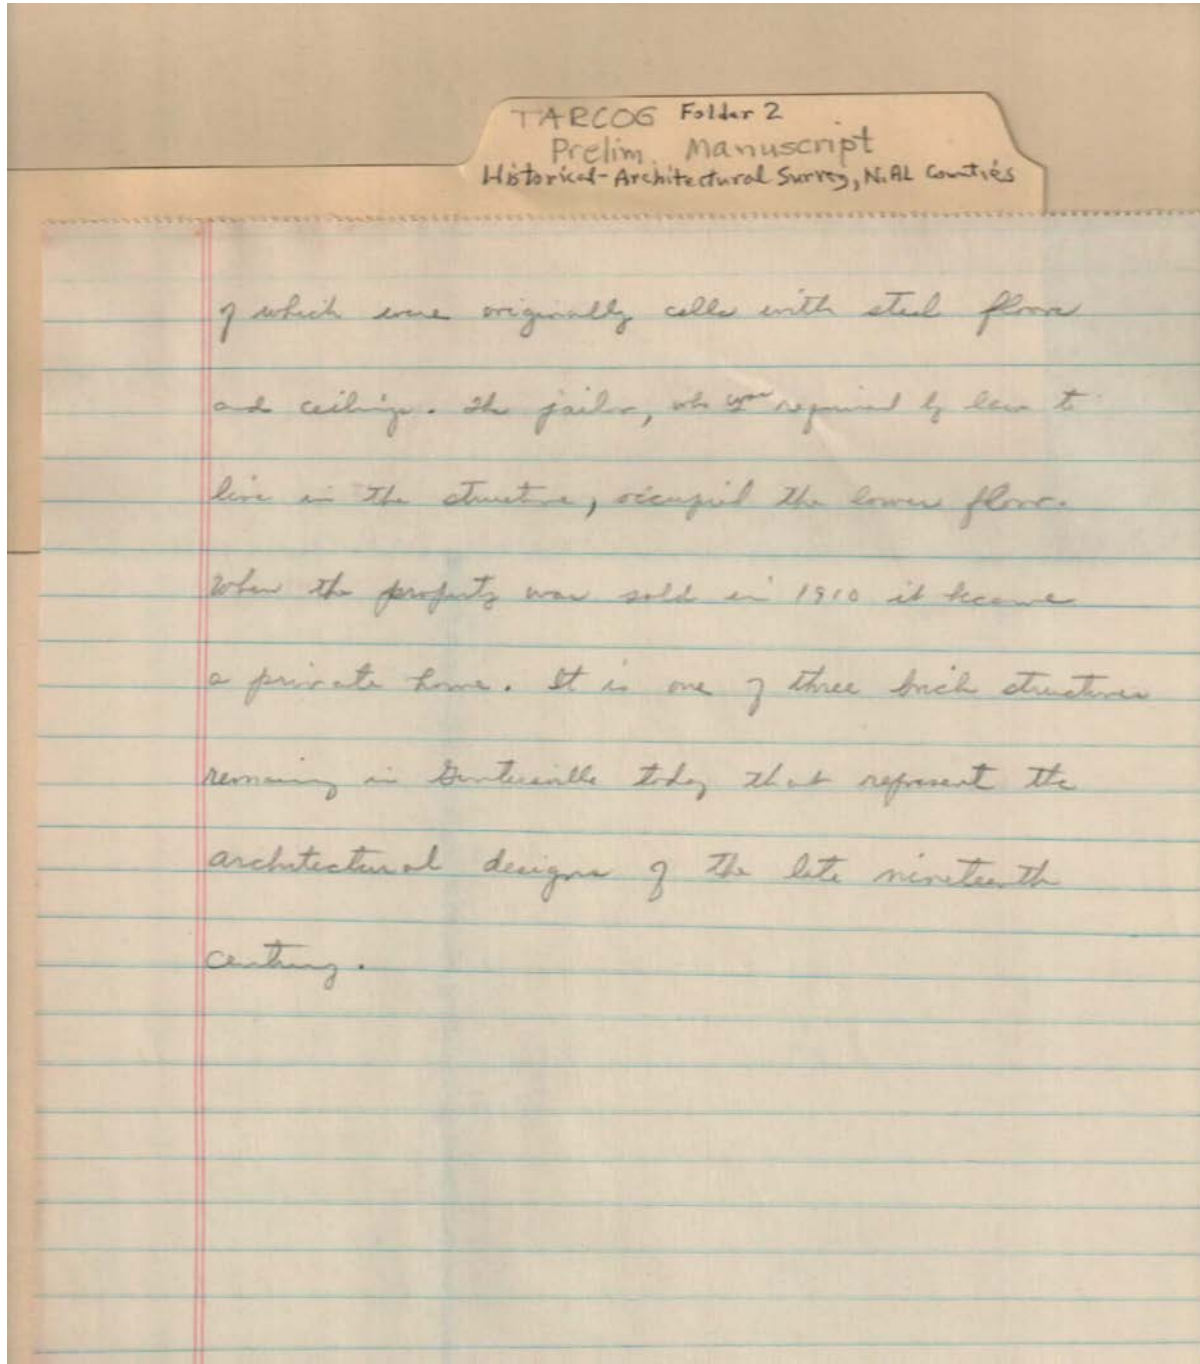 TARCOG Folder 2
Prelim. Manuscript
Historical-Architectural Survey, N. AL Counties
of which were originally cells with steel floors
and ceilings. The jailor, who was required by law to
live in the structure, occupied the lower floor.
When the property was sold in 1910 it became
a private home. It is one of three brick structures
remaining in Guntersville today that represent the
architectural designs of the late nineteenth
century.